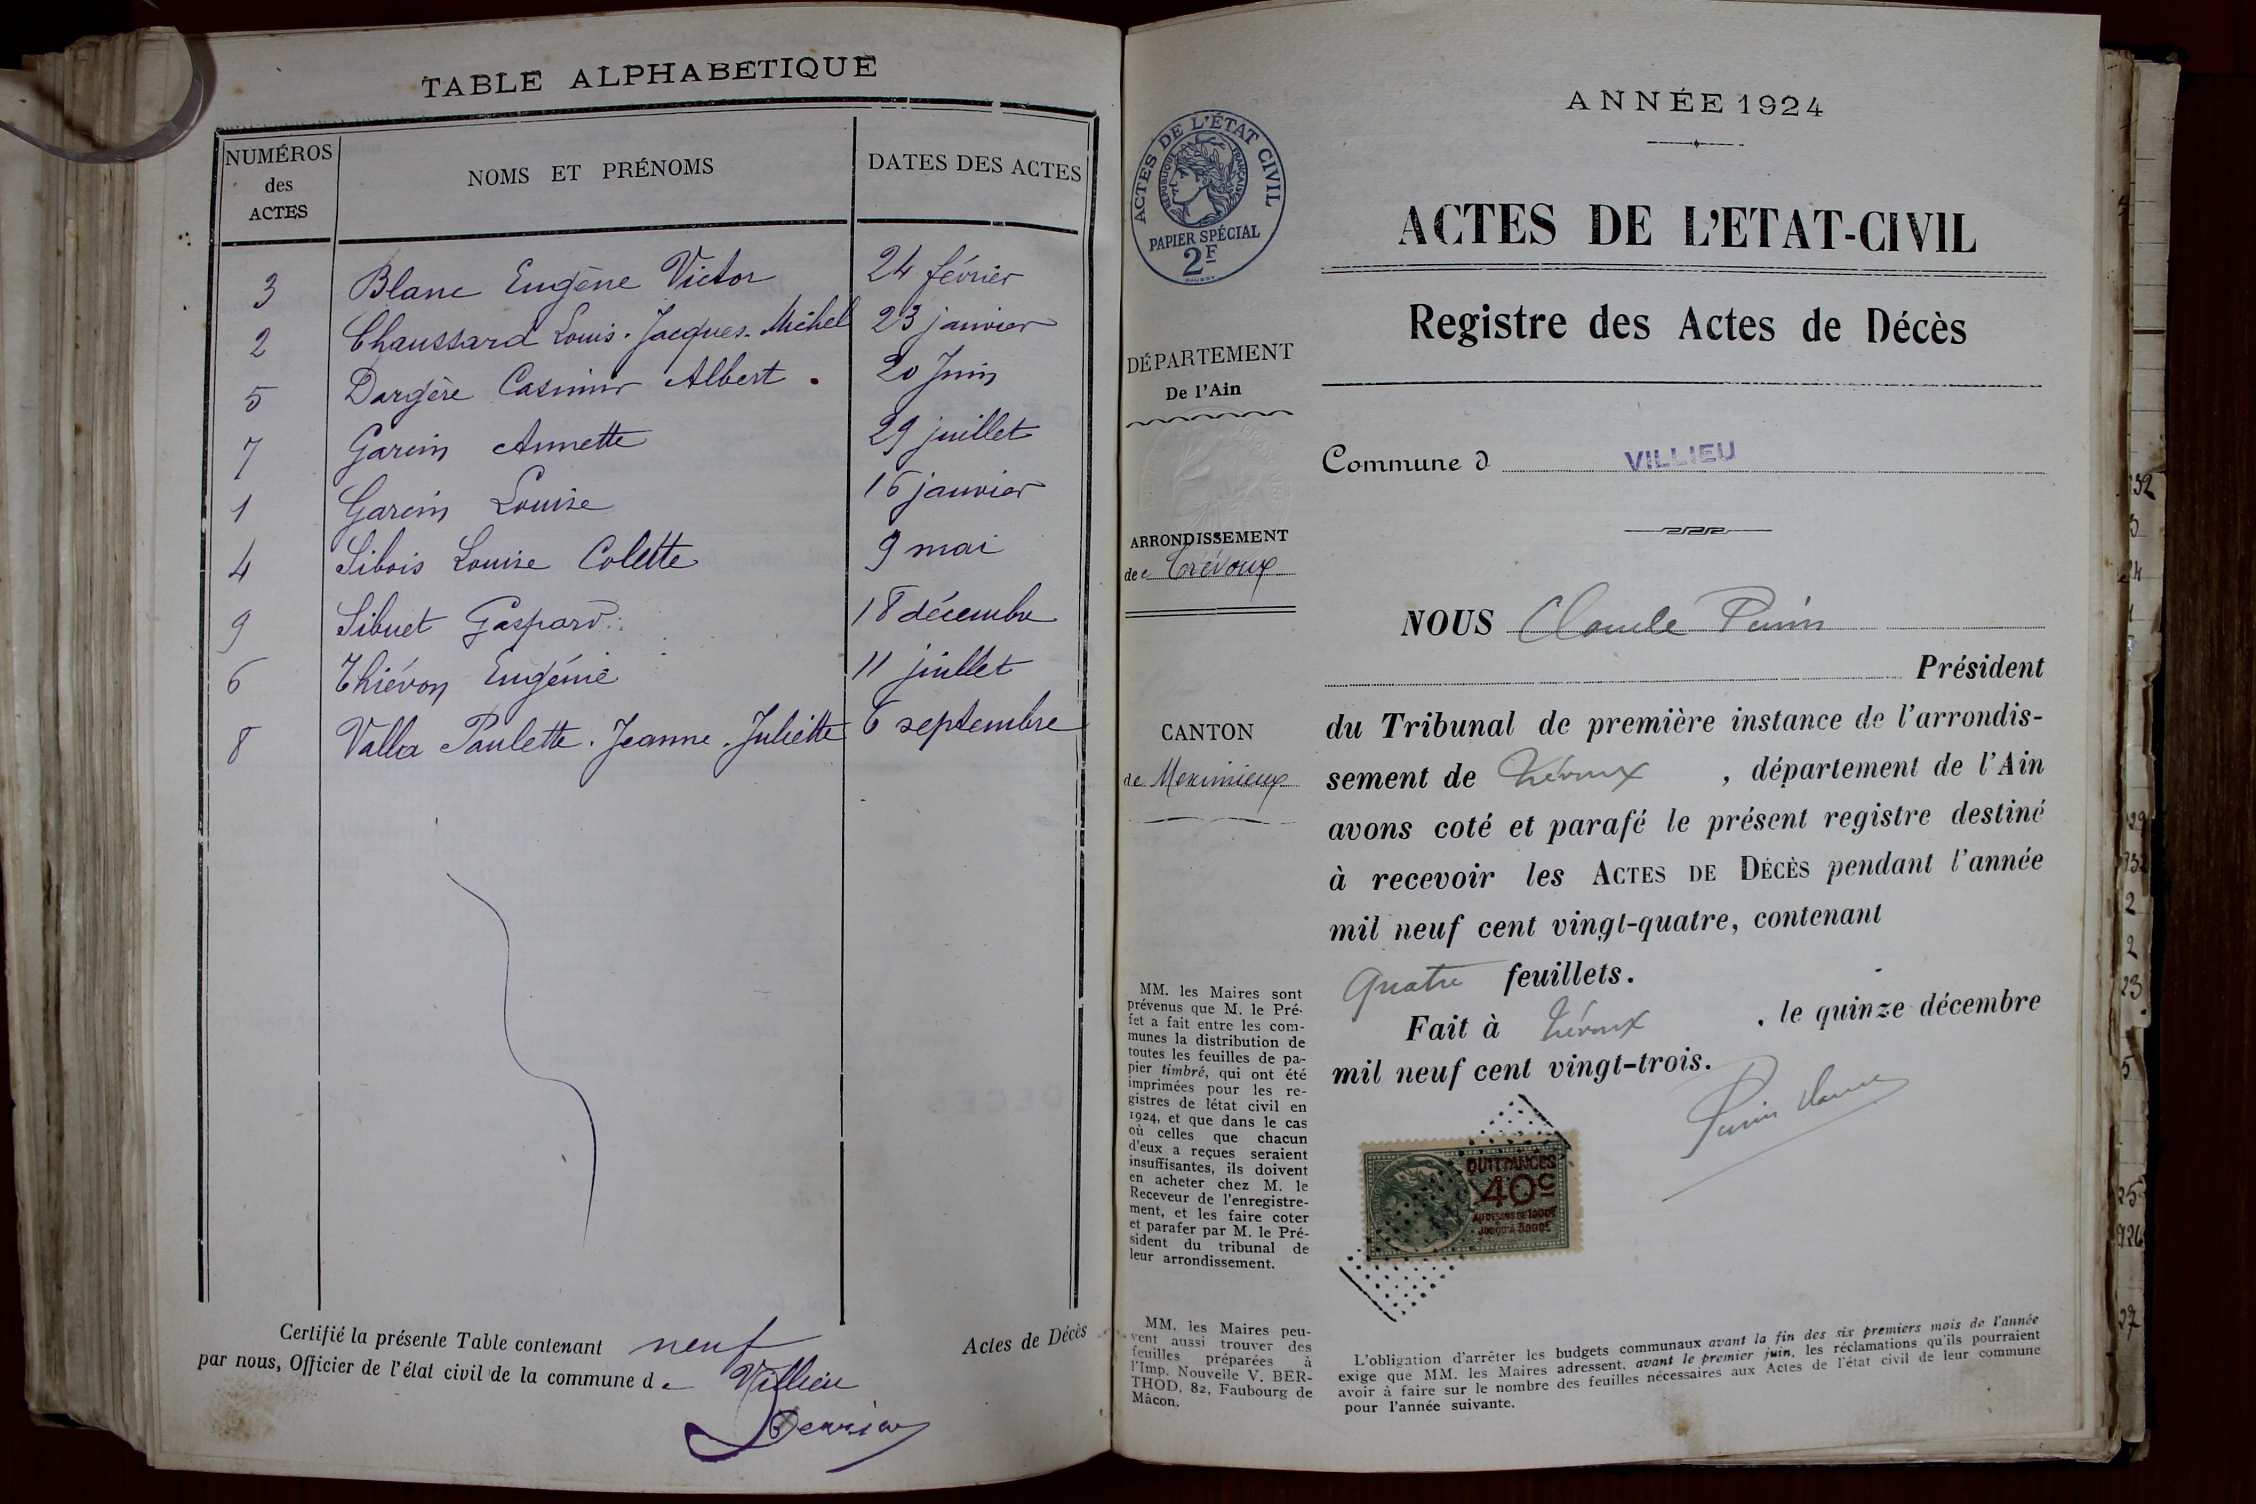 TABLE ALPHABETIQUE
NUMÉROS
des
ACTES
NOMS ET PRÉNOMS
DATES DES ACTES
3 Blanc Eugène Victor 24 février
2 Chaussard Louis-Jacques-Michel 23 janvier
5 Dargère Casimir Albert 20 Juin
7 Garcin Annette 29 juillet
1 Garcin Louise 16 janvier
4 Sibois Louise Colette 9 mai
9 Sibuet Gaspard 18 décembre
6 Thiévon Eugénie 11 juillet
8 Valla Paulette-Jeanne-Juliette 6 septembre
Certifié la présente Table contenant neuf Actes de Décès
par nous, Officier de l'état civil de la commune de Villieu
ACTES DE L'ÉTAT CIVIL
RÉPUBLIQUE FRANÇAISE
PAPIER SPÉCIAL
2F
DÉPARTEMENT
De l'Ain
ARRONDISSEMENT
de Trévoux
CANTON
de Meximieux
MM. les Maires sont
prévenus que M. le Pré-
fet a fait entre les com-
munes la distribution de
toutes les feuilles de pa-
pier timbré, qui ont été
imprimées pour les re-
gistres de létat civil en
1924, et que dans le cas
où celles que chacun
d'eux a reçues seraient
insuffisantes, ils doivent
en acheter chez M. le
Receveur de l'enregistre-
ment, et les faire coter
et parafer par M. le Pré-
sident du tribunal de
leur arrondissement.
MM. les Maires peu-
vent aussi trouver des
feuilles préparées à
l'Imp. Nouvelle V. BER-
THOD, 82, Faubourg de
Mâcon.
ANNÉE 1924
ACTES DE L'ETAT-CIVIL
Registre des Actes de Décès
Commune d VILLIEU
NOUS Claude Perrin
Président
du Tribunal de première instance de l'arrondis-
sement de Trévoux, département de l'Ain
avons coté et parafé le présent registre destiné
à recevoir les ACTES DE DÉCÈS pendant l'année
mil neuf cent vingt-quatre, contenant
Quatre feuillets.
Fait à Trévoux, le quinze décembre
mil neuf cent vingt-trois.
QUITTANCES
40c
AU DESSUS DE 1000F
JUSQU'A 3000F
L'obligation d'arrêter les budgets communaux avant la fin des six premiers mois de l'année
exige que MM. les Maires adressent, avant le premier juin, les réclamations qu'ils pourraient
avoir à faire sur le nombre des feuilles nécessaires aux Actes de l'état civil de leur commune
pour l'année suivante.